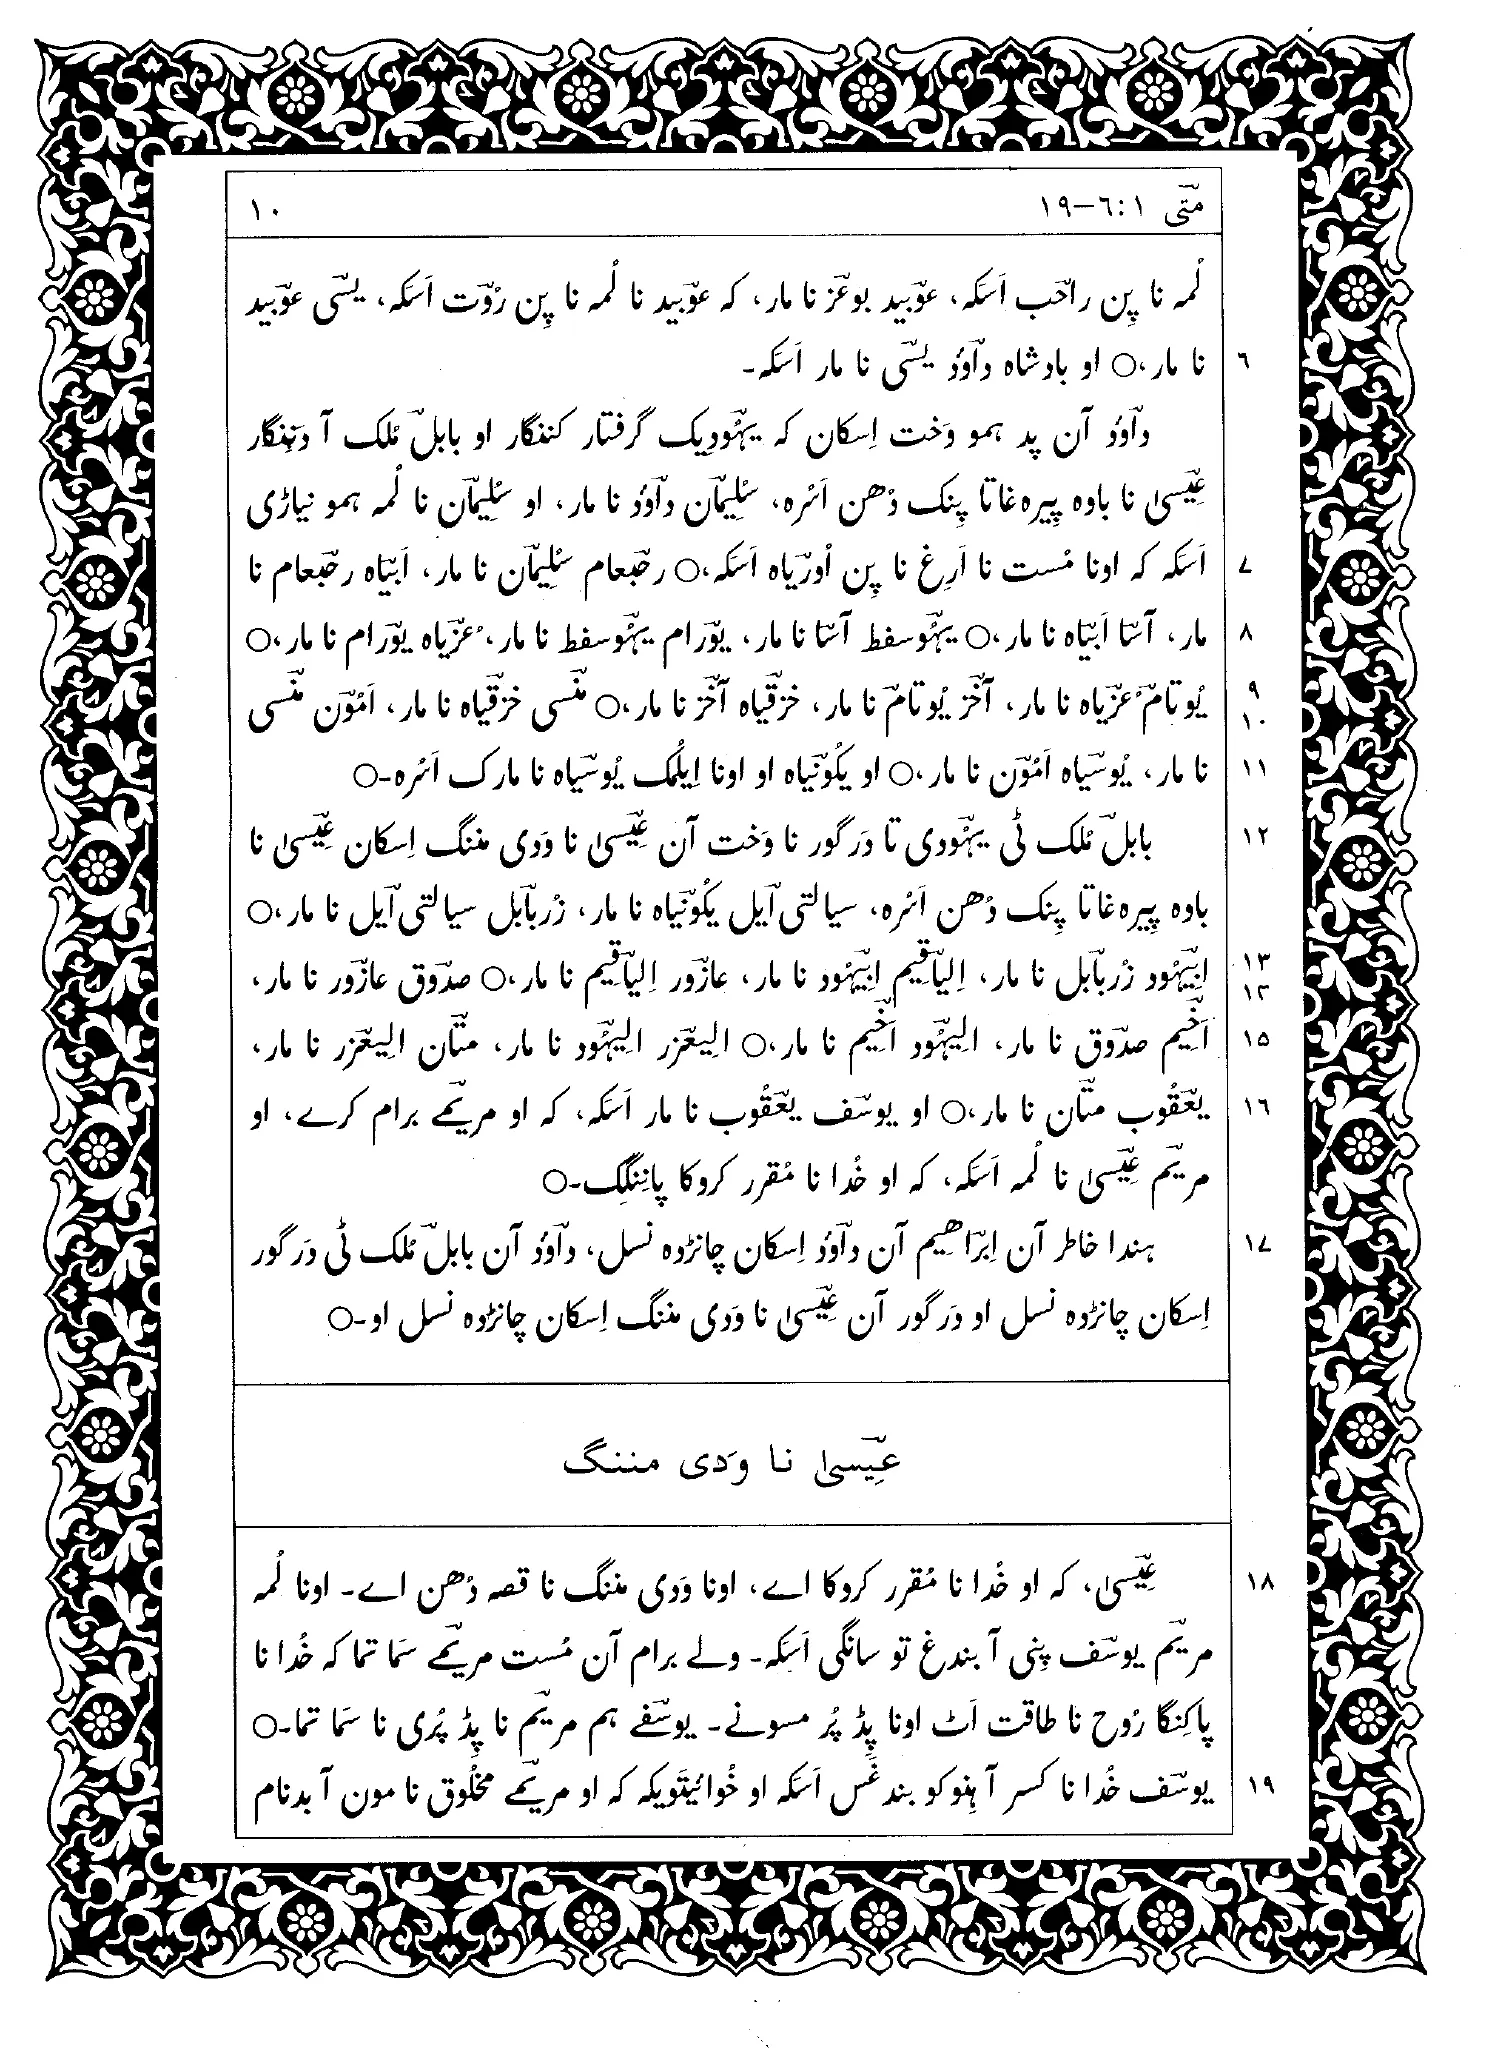 متّی ۱:۶–۱۹ ۱۰
لُمہ نا پِن راحب اَسکہ، عوبید بوعز نا مار، کہ عوبید نا لُمہ نا پِن رُوت اَسکہ، یسّی عوبید
۶ نا مار،○ او بادشاہ داؤد یسّی نا مار اَسکہ۔
داؤد آن پد ہمو وَخت اِسکان کہ یہُودیک گرفتار کننگار او بابل مُلک آ دننگار
عیسیٰ نا باوہ پِیرہ غاتا پِنک دُھن اَسُرہ، سُلیمان داؤد نا مار، او سُلیمان نا لُمہ ہمو نیاڑی
۷ اَسکہ کہ اونا مُست نا اَرِغ نا پِن اُوریاہ اَسکہ،○ رحبعام سُلیمان نا مار، اَبیّاہ رحبعام نا
۸ مار، آسا اَبیّاہ نا مار،○ یہُوسفط آسا نا مار، یورام یہُوسفط نا مار، عُزّیاہ یورام نا مار،○
۹ ۱۰ یُوتام عُزّیاہ نا مار، آخز یُوتام نا مار، خزقیاہ آخز نا مار،○ منسی خزقیاہ نا مار، اَمُون منسی
۱۱ نا مار، یُوسیاہ اَمُون نا مار،○ او یکُونیاہ او اونا اِیلُمک یُوسیاہ نا مارک اَسُرہ۔○
۱۲ بابل مُلک ٹی یہُودی تا دَرگور نا وَخت آن عیسیٰ نا وَدی مننگ اِسکان عیسیٰ نا
باوہ پِیرہ غاتا پِنک دُھن اَسُرہ، سیالتی آیل یکُونیاہ نا مار، زرُبابل سیالتی آیل نا مار،○
۱۳ ۱۴ اِبیہُود زرُبابل نا مار، اِلیاقیم اِبیہُود نا مار، عازور اِلیاقیم نا مار،○ صدوق عازور نا مار،
۱۵ اَخیم صدوق نا مار، الیہُود اَخیم نا مار،○ الیعزر الیہُود نا مار، متان الیعزر نا مار،
۱۶ یعقُوب متان نا مار،○ او یوسف یعقُوب نا مار اَسکہ، کہ او مریمے برام کرے، او
مریم عیسیٰ نا لُمہ اَسکہ، کہ او خُدا نا مُقرر کروکا پاننگِک۔○
۱۷ ہندا خاطر آن اِبراھیم آن داؤد اِسکان چانڑدہ نسل، داؤد آن بابل مُلک ٹی دَرگور
اِسکان چانڑدہ نسل او دَرگور آن عیسیٰ نا وَدی مننگ اِسکان چانڑدہ نسل او۔○
عیسیٰ نا وَدی مننگ
۱۸ عیسیٰ، کہ او خُدا نا مُقرر کروکا اے، اونا وَدی مننگ نا قصہ دُھن اے۔ اونا لُمہ
مریم یوسف پِنی آ بندغ تو سانگی اَسکہ۔ ولے برام آن مُست مریمے سَما تما کہ خُدا نا
پاکِنگا رُوح نا طاقت اَٹ اونا پِڈ پُر مسونے۔ یوسفے ہم مریم نا پِڈ پُری نا سَما تما۔○
۱۹ یوسف خُدا نا کسر آ ہِنوکو بندغَس اَسکہ او خُوائیتَویکہ کہ او مریمے مخلُوق نا مون آ بدنام